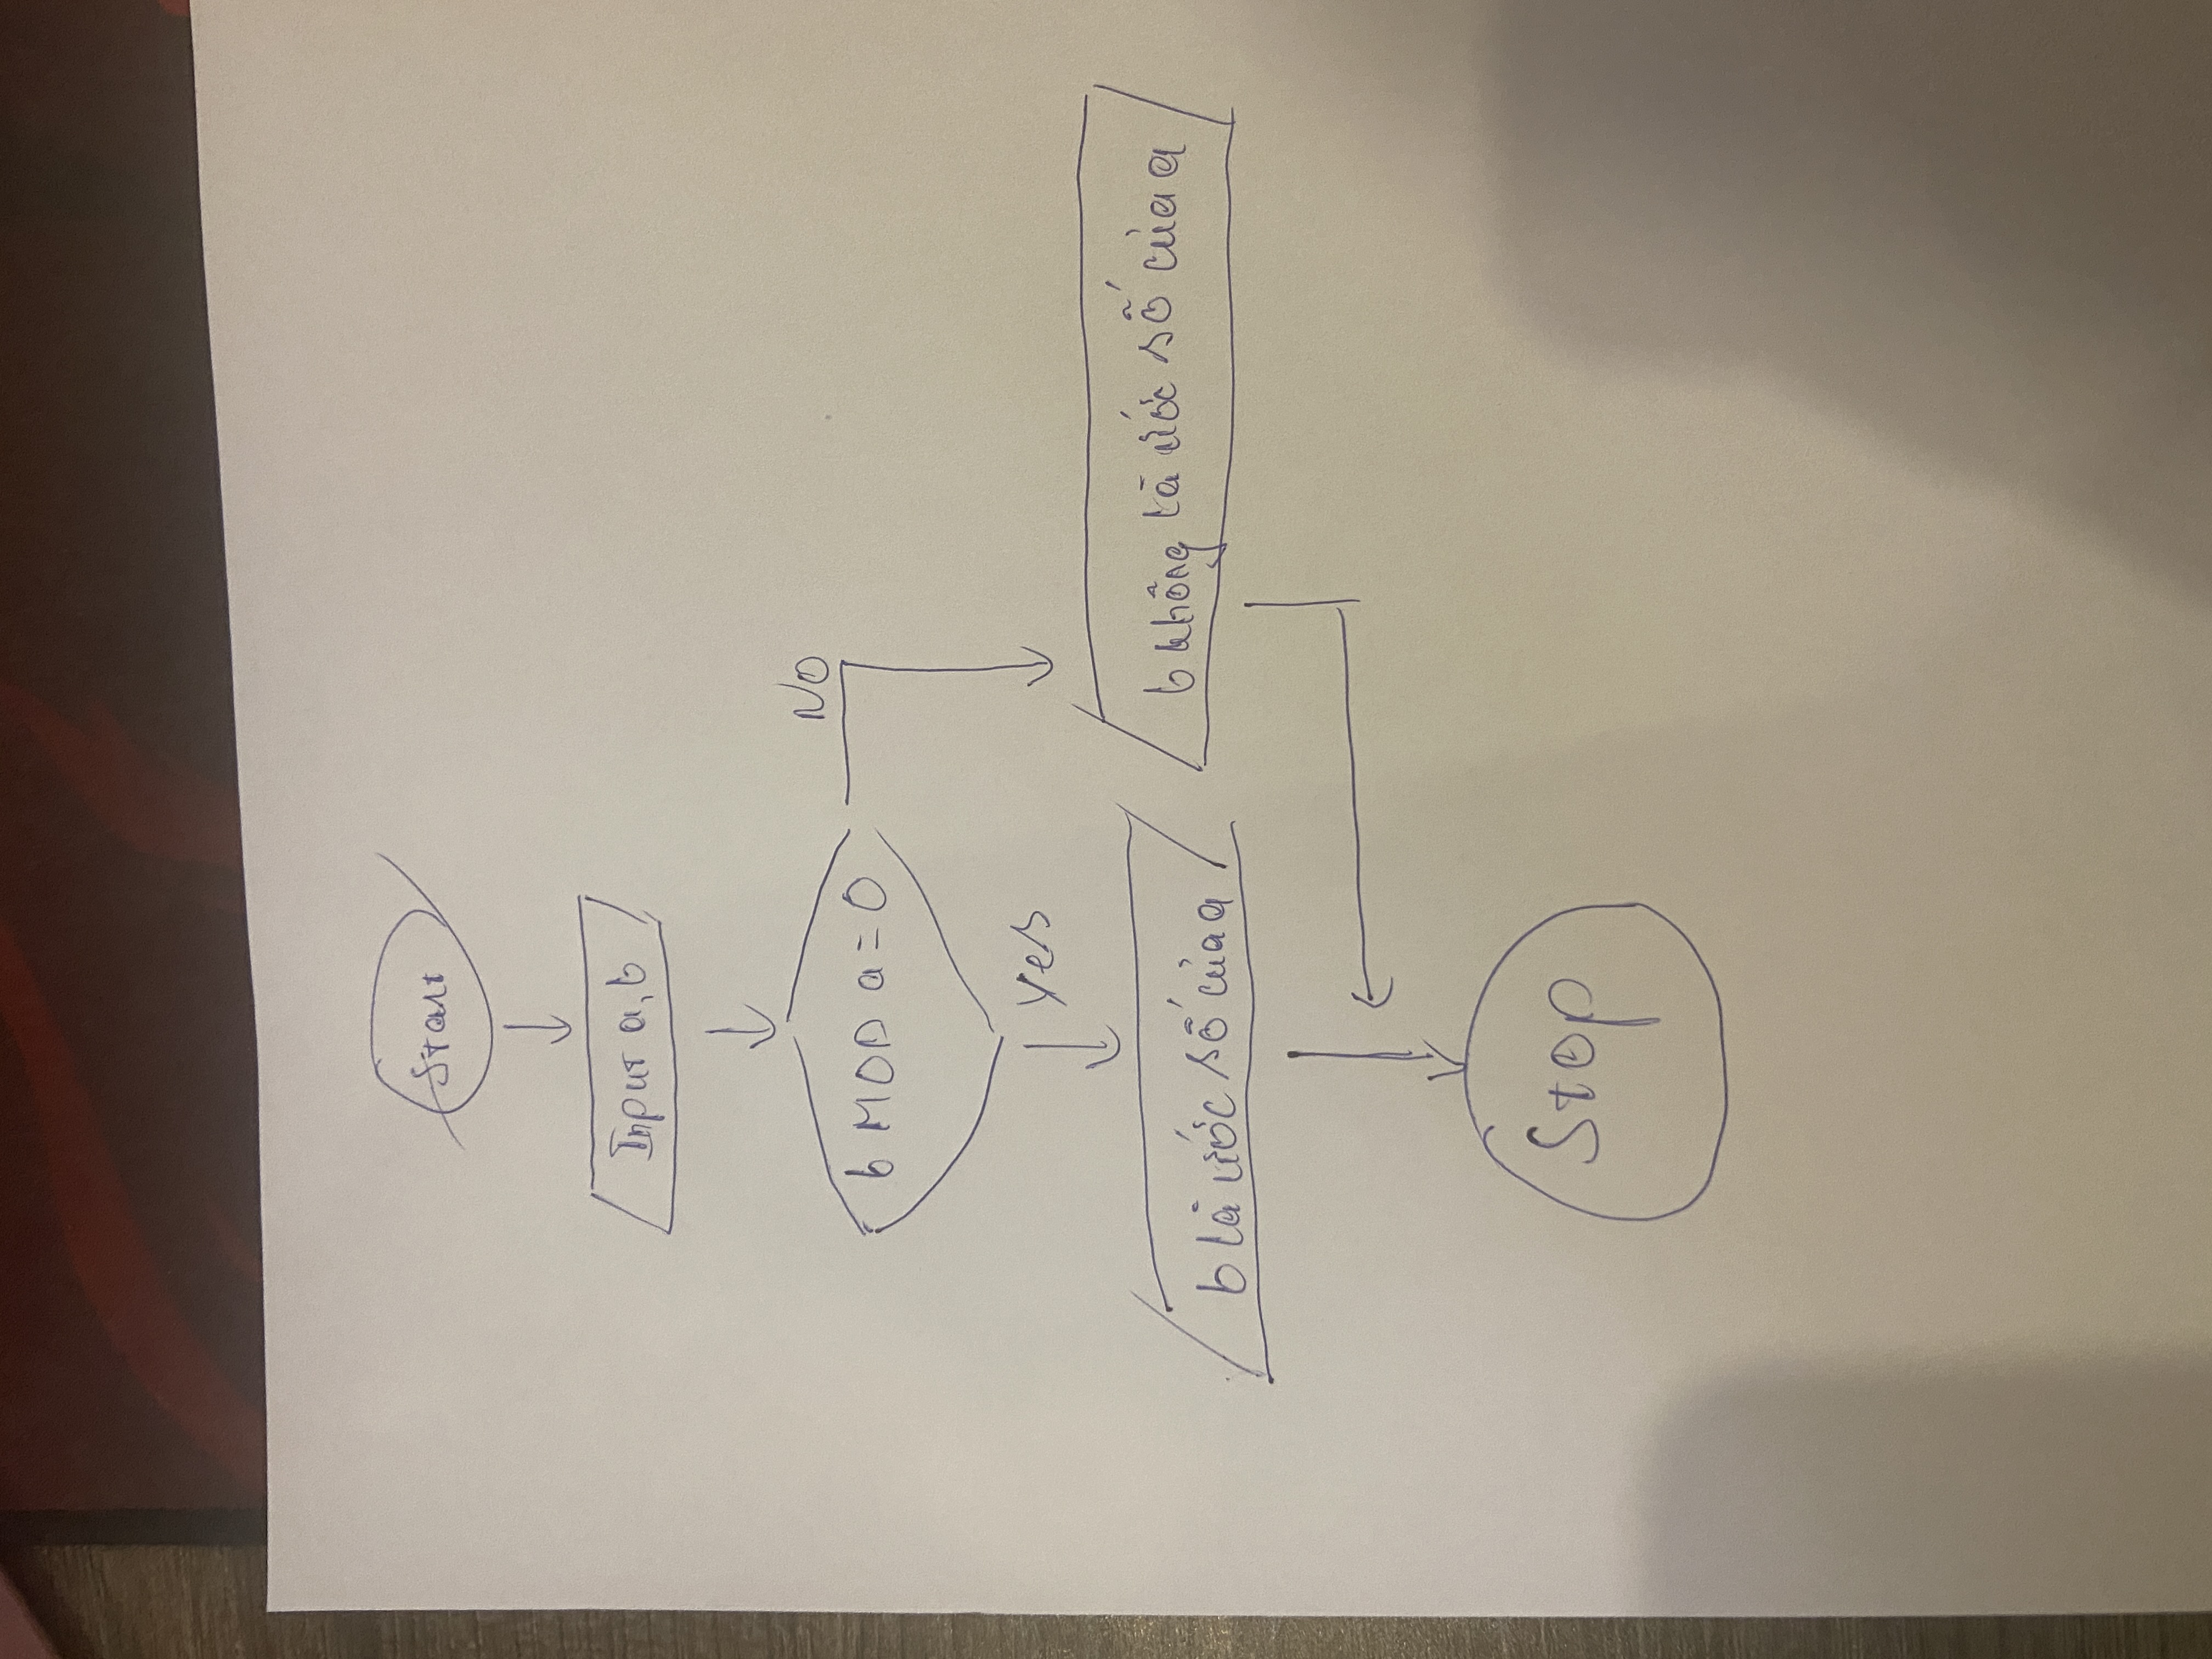 Start
Input a, b
b MOD a = 0
NO
Yes
b là ước số của a
b không là ước số của a
Stop